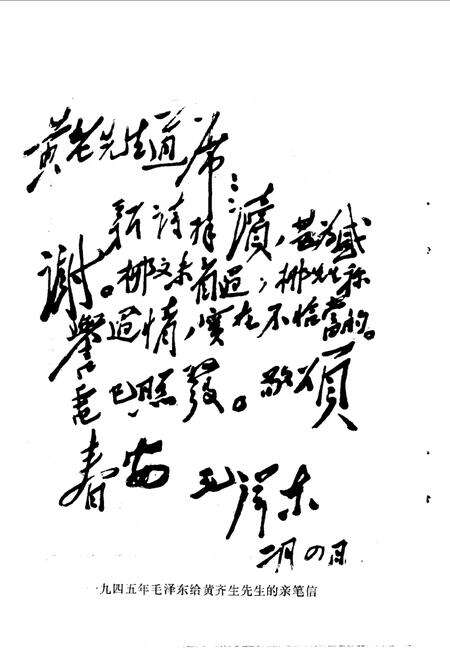 黄老先生道席：
新诗拜读，甚为感
谢。柳文未看过，柳先生称
誉过情，实在不恰当的。
电已照发。敬颂
春安 毛泽东
二月四日
一九四五年毛泽东给黄齐生先生的亲笔信